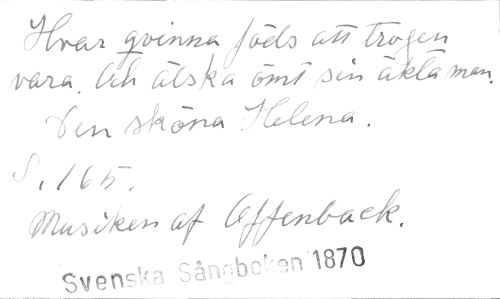 Hvar qvinna föds att trogen
vara. Och älska ömt sin äkta man.
Den sköna Helena.
S. 165.
Musiken af Offenback.
Svenska Sångboken 1870